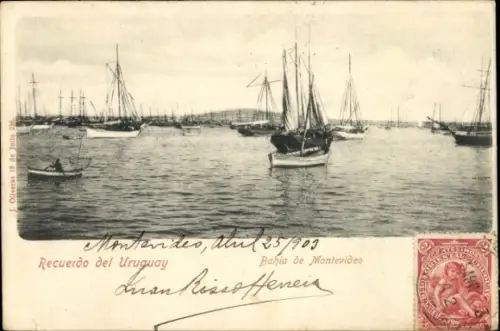 J. Oliveras 18 de Julio 29
Montevideo, Abril 25/903
Recuerdo del Uruguay
Bahia de Montevideo
Juan Risso Herrera
2